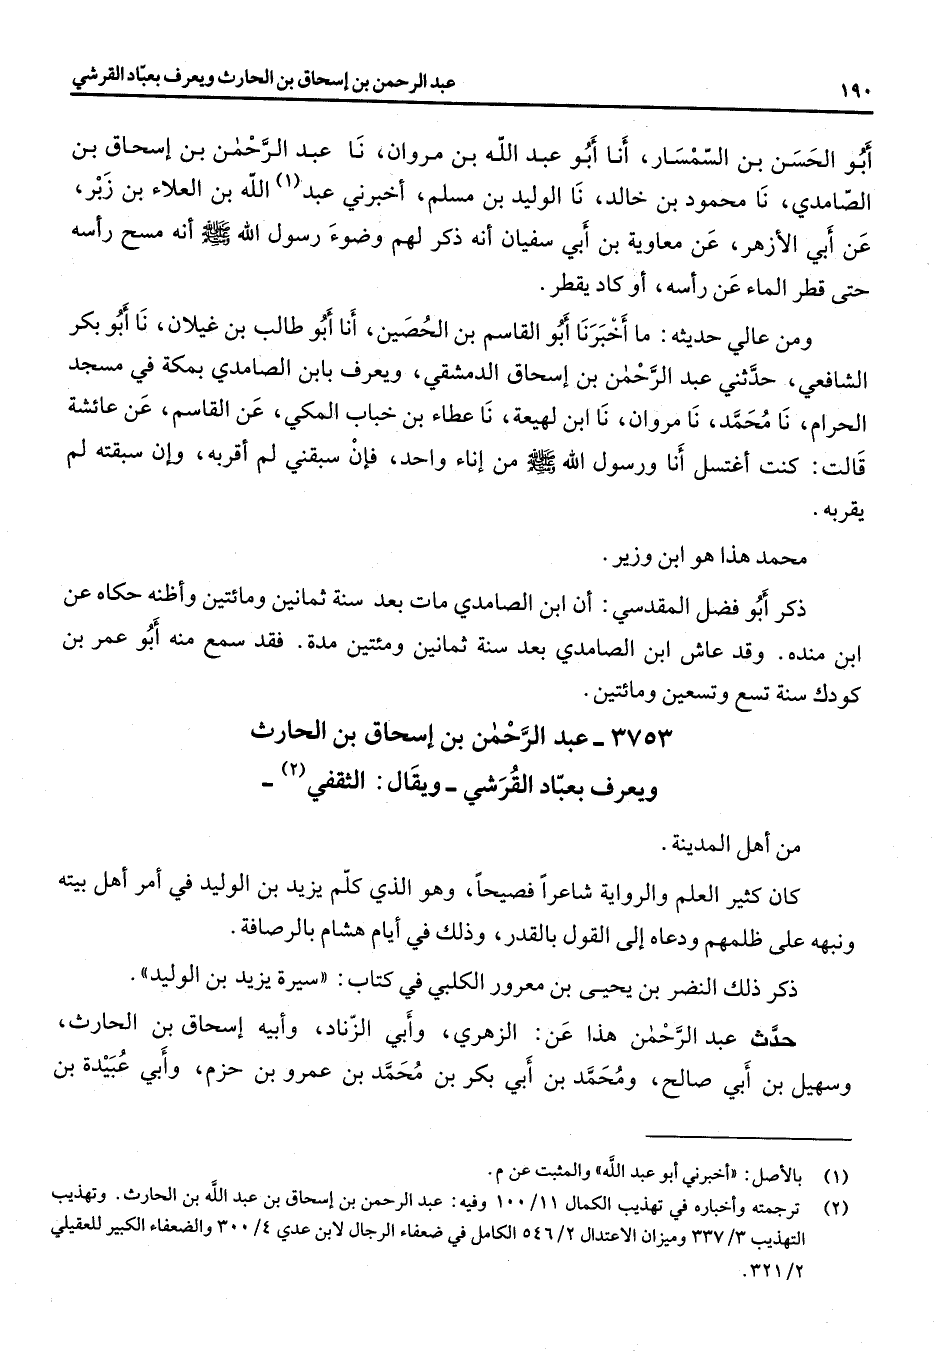 ١٩٠ عبد الرحمن بن إسحاق بن الحارث ويعرف بعبّاد القرشي
أَبُو الحَسَن بن السّمْسَار، أَنا أَبُو عبد اللّه بن مروان، نَا عبد الرَّحْمٰن بن إسحاق بن
الصّامدي، نَا محمود بن خالد، نَا الوليد بن مسلم، أخبرني عبد(١) اللّه بن العلاء بن زَبْر،
عَن أَبي الأزهر، عَن معاوية بن أَبي سفيان أنه ذكر لهم وضوءَ رسول الله ﷺ أنه مسح رأسه
حتى قطر الماء عَن رأسه، أو كاد يقطر.
ومن عالي حديثه: ما أَخْبَرَنَا أَبُو القاسم بن الحُصَين، أَنا أَبُو طالب بن غيلان، نَا أَبُو بكر
الشافعي، حدَّثني عبد الرَّحْمٰن بن إسحاق الدمشقي، ويعرف بابن الصامدي بمكة في مسجد
الحرام، نَا مُحَمَّد، نَا مروان، نَا ابن لهيعة، نَا عطاء بن خباب المكي، عَن القاسم، عَن عائشة
قَالت: كنت أغتسل أَنا ورسول الله ﷺ من إناء واحد، فإنْ سبقني لم أقربه، وإن سبقته لم
يقربه.
محمد هذا هو ابن وزير.
ذكر أَبُو فضل المقدسي: أن ابن الصامدي مات بعد سنة ثمانين ومائتين وأظنه حكاه عن
ابن منده. وقد عاش ابن الصامدي بعد سنة ثمانين ومئتين مدة. فقد سمع منه أَبُو عمر بن
كودك سنة تسع وتسعين ومائتين.
٣٧٥٣ ـ عبد الرَّحْمٰن بن إسحاق بن الحارث
ويعرف بعبّاد القُرَشي ـ ويقَال: الثقفي(٢) ـ
من أهل المدينة.
كان كثير العلم والرواية شاعراً فصيحاً، وهو الذي كلّم يزيد بن الوليد في أمر أهل بيته
ونبهه على ظلمهم ودعاه إلى القول بالقدر، وذلك في أيام هشام بالرصافة.
ذكر ذلك النضر بن يحيـى بن معرور الكلبي في كتاب: «سيرة يزيد بن الوليد».
حدَّث عبد الرَّحْمٰن هذا عَن: الزهري، وأَبي الزّناد، وأبيه إسحاق بن الحارث،
وسهيل بن أَبي صالح، ومُحَمَّد بن أَبي بكر بن مُحَمَّد بن عمرو بن حزم، وأَبي عُبَيْدة بن
(١) بالأصل: «أخبرني أبو عبد اللّه» والمثبت عن م.
(٢) ترجمته وأخباره في تهذيب الكمال ١١/ ١٠٠ وفيه: عبد الرحمن بن إسحاق بن عبد اللّه بن الحارث. وتهذيب
التهذيب ٣/ ٣٣٧ وميزان الاعتدال ٢/ ٥٤٦ الكامل في ضعفاء الرجال لابن عدي ٤/ ٣٠٠ والضعفاء الكبير للعقيلي
٢/ ٣٢١.